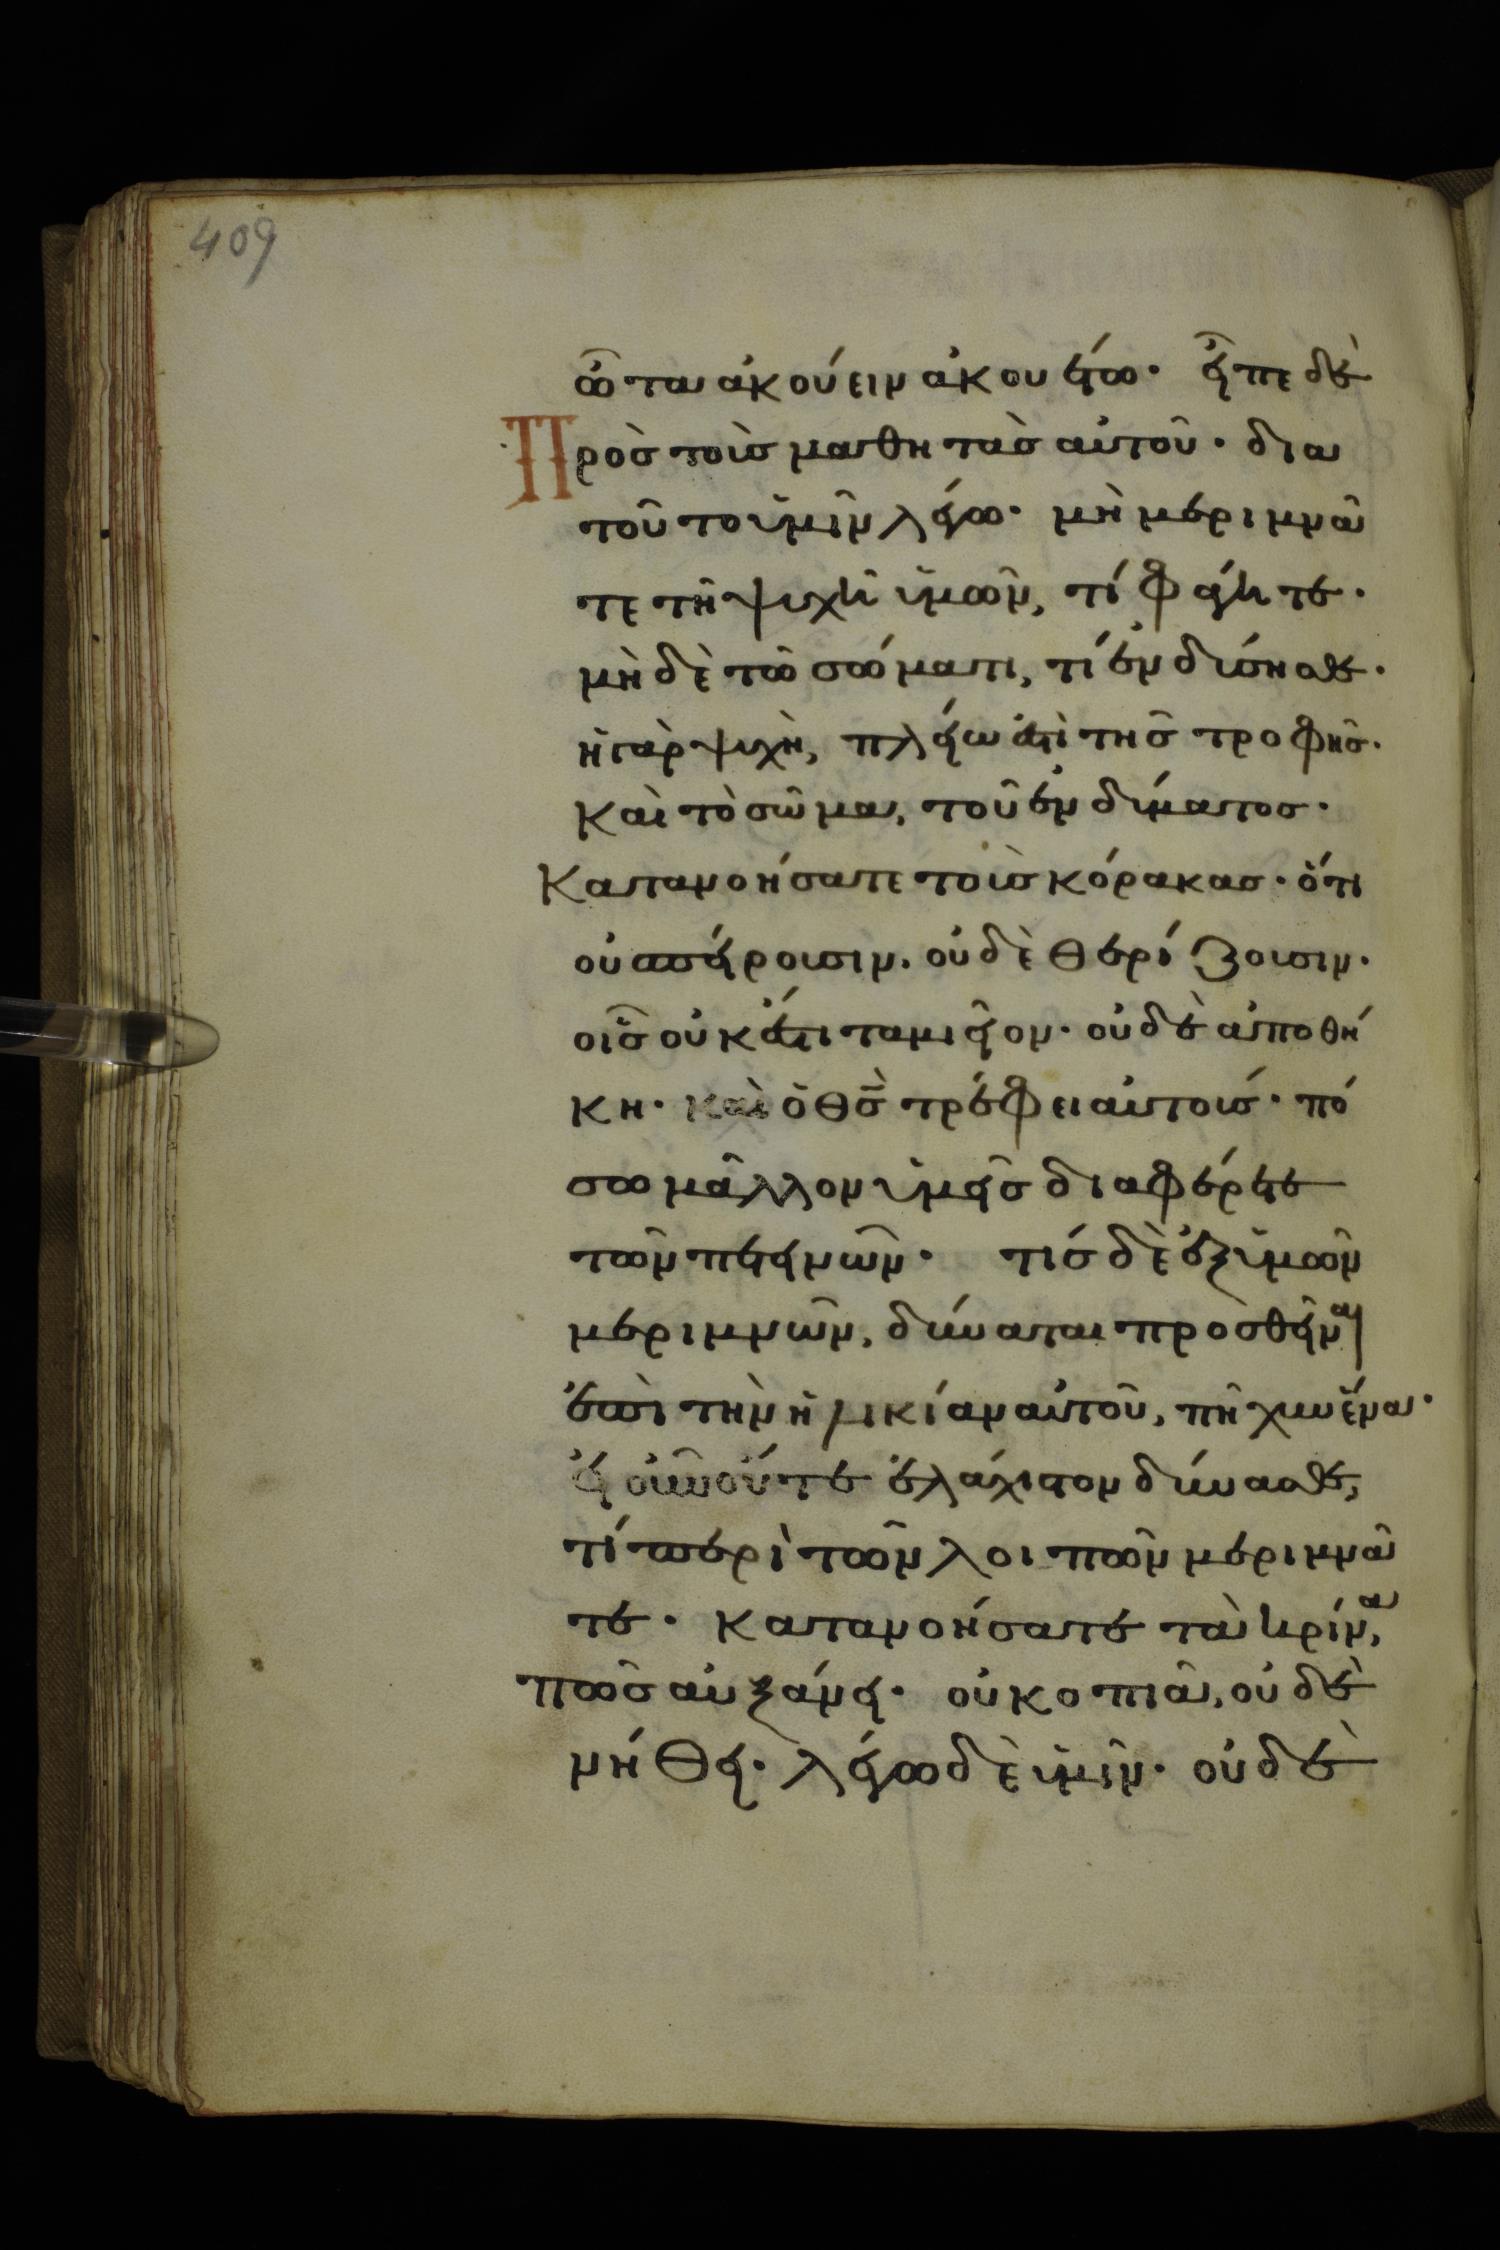 409
ὦτα ἀκούειν ἀκουέτω· εἶπε δὲ
Πρὸς τοὺς μαθητὰς αὐτοῦ· δια
τοῦτο ὑμῖν λέγω· μὴ μεριμνᾶ
τε τῆ ψυχῆ ὑμῶν, τί φάγητε·
μὴ δὲ τῶ σώματι, τί ἐνδύσησθε·
ἡ γὰρ ψυχὴ, πλείω ἐστὶ τῆς τροφῆς·
Καὶ τὸ σῶμα, τοῦ ἐνδύματος·
Κατανοήσατε τοὺς κόρακας· ὅτι
οὐ σπείρουσιν. οὐδὲ θερίζουσιν·
οἷς οὐκ ἔστι ταμιεῖον· οὐδὲ ἀποθή
κη· καὶ ὁ θς̄ τρέφει αὐτούς· πό
σω μᾶλλον ὑμεῖς διαφέρετε
τῶν πετεινῶν· τίς δὲ ἐξ ὑμῶν
μεριμνῶν, δύναται προσθεῖναι
ἐπὶ τὴν ἡλικίαν αὐτοῦ, πῆχυν ἕνα·
εἰ οὖν οὔτε ἐλάχιστον δύνασθε,
τί περὶ τῶν λοιπῶν μεριμνᾶ
τε· κατανοήσατε τὰ κρίνα,
πῶς αὐξάνει· οὐ κοπιᾶ, οὐδὲ
νήθει· λέγω δὲ ὑμῖν· οὐδὲ